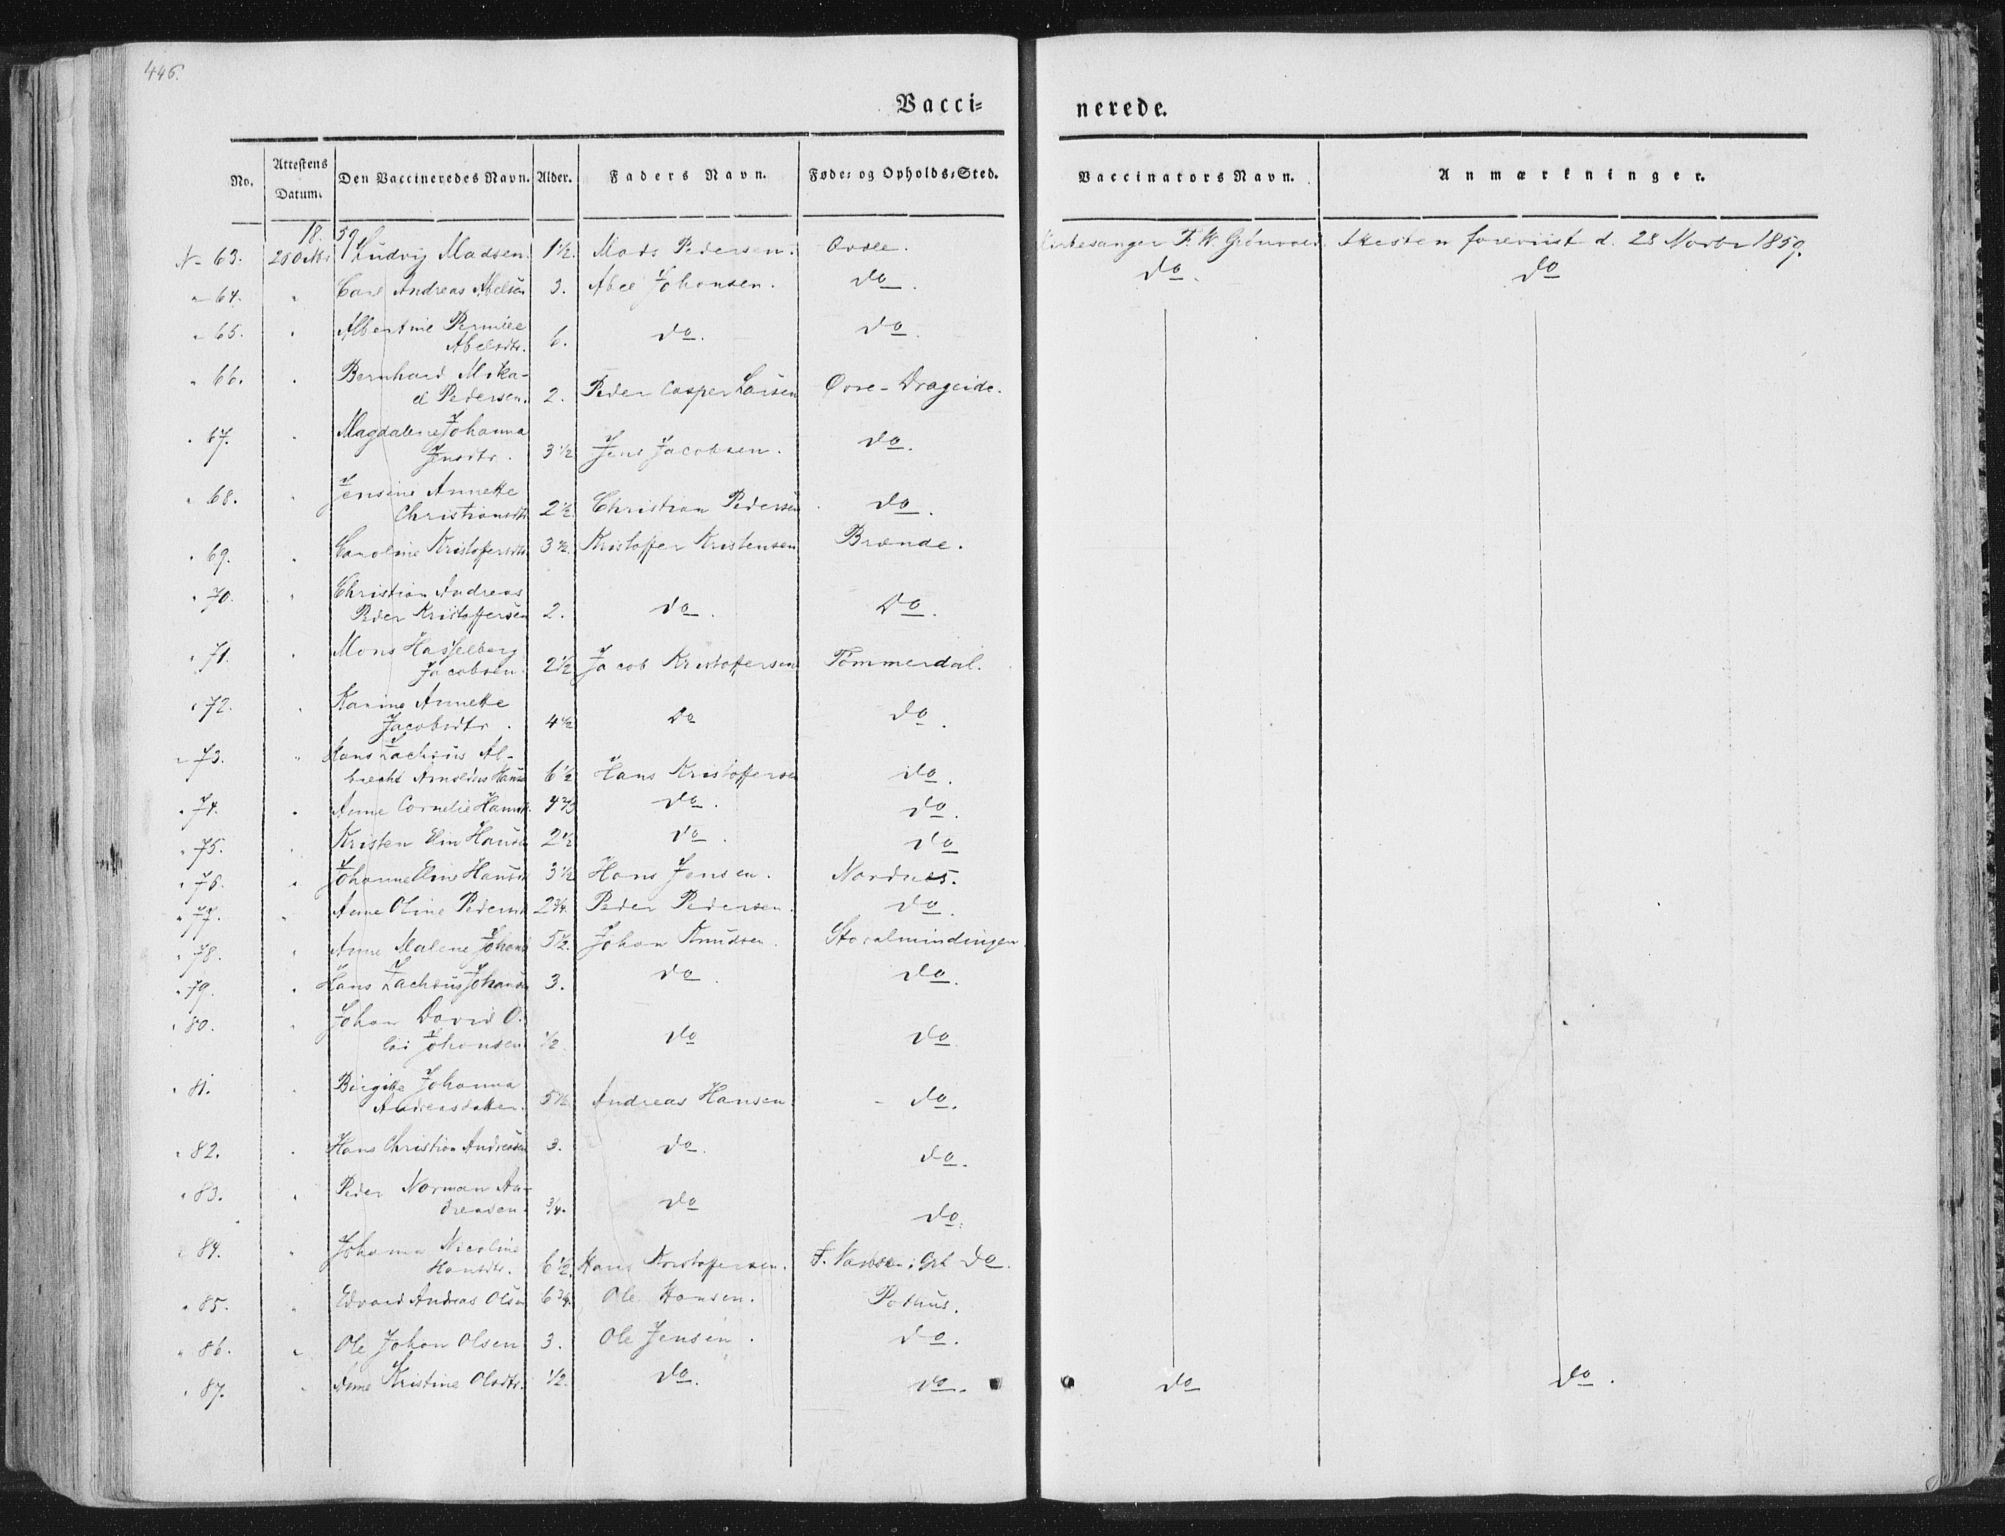 446.
Vacci= nerede.
No. Attestens Datum. Den Vaccineredes Navn. Alder. Faders Navn. Føde= og Opholds=Sted. Vaccinators Navn. Anmærkninger.
18 59
No 63. Ludvig Madsen. 1½. Mads Pedersen. Kirkesanger F. W. Grønvold. Attesten foreviist d. 28 Novbr 1859.
" 64. " Carl Andreas Abelsen 3. Abel Johansen. do. do. do
" 65. " Albertine Pernille
Abelsdtr. 6. do. do.
" 66. " Bernhard Mika-
el Pedersen. 2. Peder Casper Larsen Øvre-Drageide.
" 67. " Magdalene Johanna
Jensdtr. 3½ Jens Jacobsen. do.
" 68. " Jensine Annette
Christiansdtr. 2½. Christian Pedersen do.
" 69. " Caroline Kristofersdtr 3½. Kristoffer Kristensen Brænde.
" 70. " Christian Andreas
Peder Kristoffersen 2. do. do.
" 71. " Mons Hasselberg
Jacobsen. 2½ Jacob Kristoffersen Tømmerdal.
" 72. " Karine Annette
Jacobsdtr. 4½ do do.
" 73. " Hans Zachæus Al-
brecht Arnoldus Hansen 6½ Hans Kristoffersen do.
" 74. " Anne Cornelie Hansdtr. do. do.
" 75. " Kristen Elin Hansdtr 2½ do. do
" 76. " Johanne Eline Hansdtr 3½ Hans Jensen. Nordnes.
" 77. " Anne Oline Pedersdtr 2¾. Peder Pedersen. do.
" 78. " Anne Malene Johansdtr 5½. Johan Knudsen. Storalmindingen.
" 79. " Hans Zachæus Johansen 3. do. do.
" 80. " Johan David O-
lai Johansen ½. do do.
" 81. " Birgitte Johanna
Andreasdatter. 5½. Andreas Hansen. do.
" 82. " Hans Christian Andreassen 3. do. do.
" 83. " Peder Norman An-
dreasen. ¾. do do.
" 84. " Johanna Nicoline
Hansdtr. 6½. Hans Kristoffersen. do.
" 85. " Edvard Andreas Olsen 6¾. Ole Hansen. Pothus.
" 86. " Ole Johan Olsen 3. Ole Jensen. do.
" 87. " Anne Kristine Olsdtr. ½. do. do. do do.